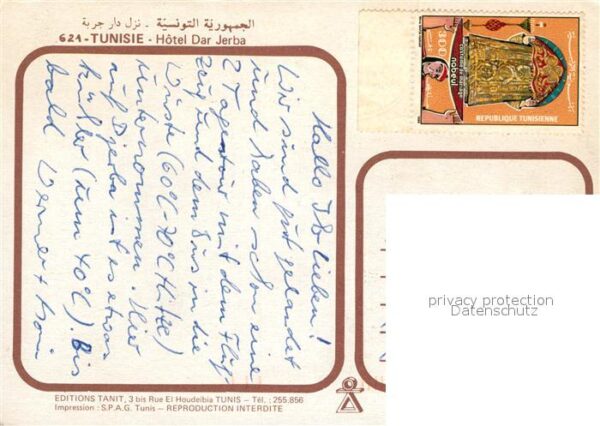 الجمهورية التونسية - نزل دار جربة
621 - TUNISIE - Hôtel Dar Jerba
Hallo Ihr Lieben!
Wir sind gut gelandet
und haben schon eine
2 Tagestour mit dem Flug-
zeug und dem Bus in die
Wüste (60°C-70°C Hitze)
unternommen. Hier
auf Djerba ist es etwas
kühler (zum 40°C). Bis
bald Werner +
300
nabeul
REPUBLIQUE TUNISIENNE
privacy protection
Datenschutz
EDITIONS TANIT, 3 bis Rue El Houdeibia TUNIS - Tél. : 255.856
Impression : S.P.A.G. Tunis - REPRODUCTION INTERDITE